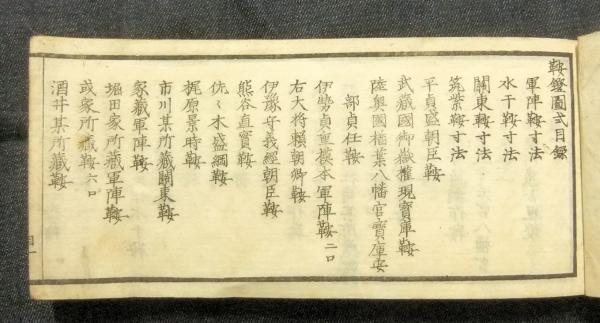 鞍鐙圖式目録
軍陣鞍寸法
水干鞍寸法
關東鞍寸法
筑紫鞍寸法
平貞盛朝臣鞍
武蔵國御嶽權現寳庫鞍
陸奥國楯葉八幡宮寳庫安
部貞任鞍
伊勢貞重摸本軍陣鞍二口
右大将頼朝卿鞍
伊豫守義經朝臣鞍
熊谷直實鞍
佐々木盛綱鞍
梶原景時鞍
市川某所藏關東鞍
家藏軍陣鞍
堀田家所藏軍陣鞍
或家所藏鞍六口
酒井某所藏鞍